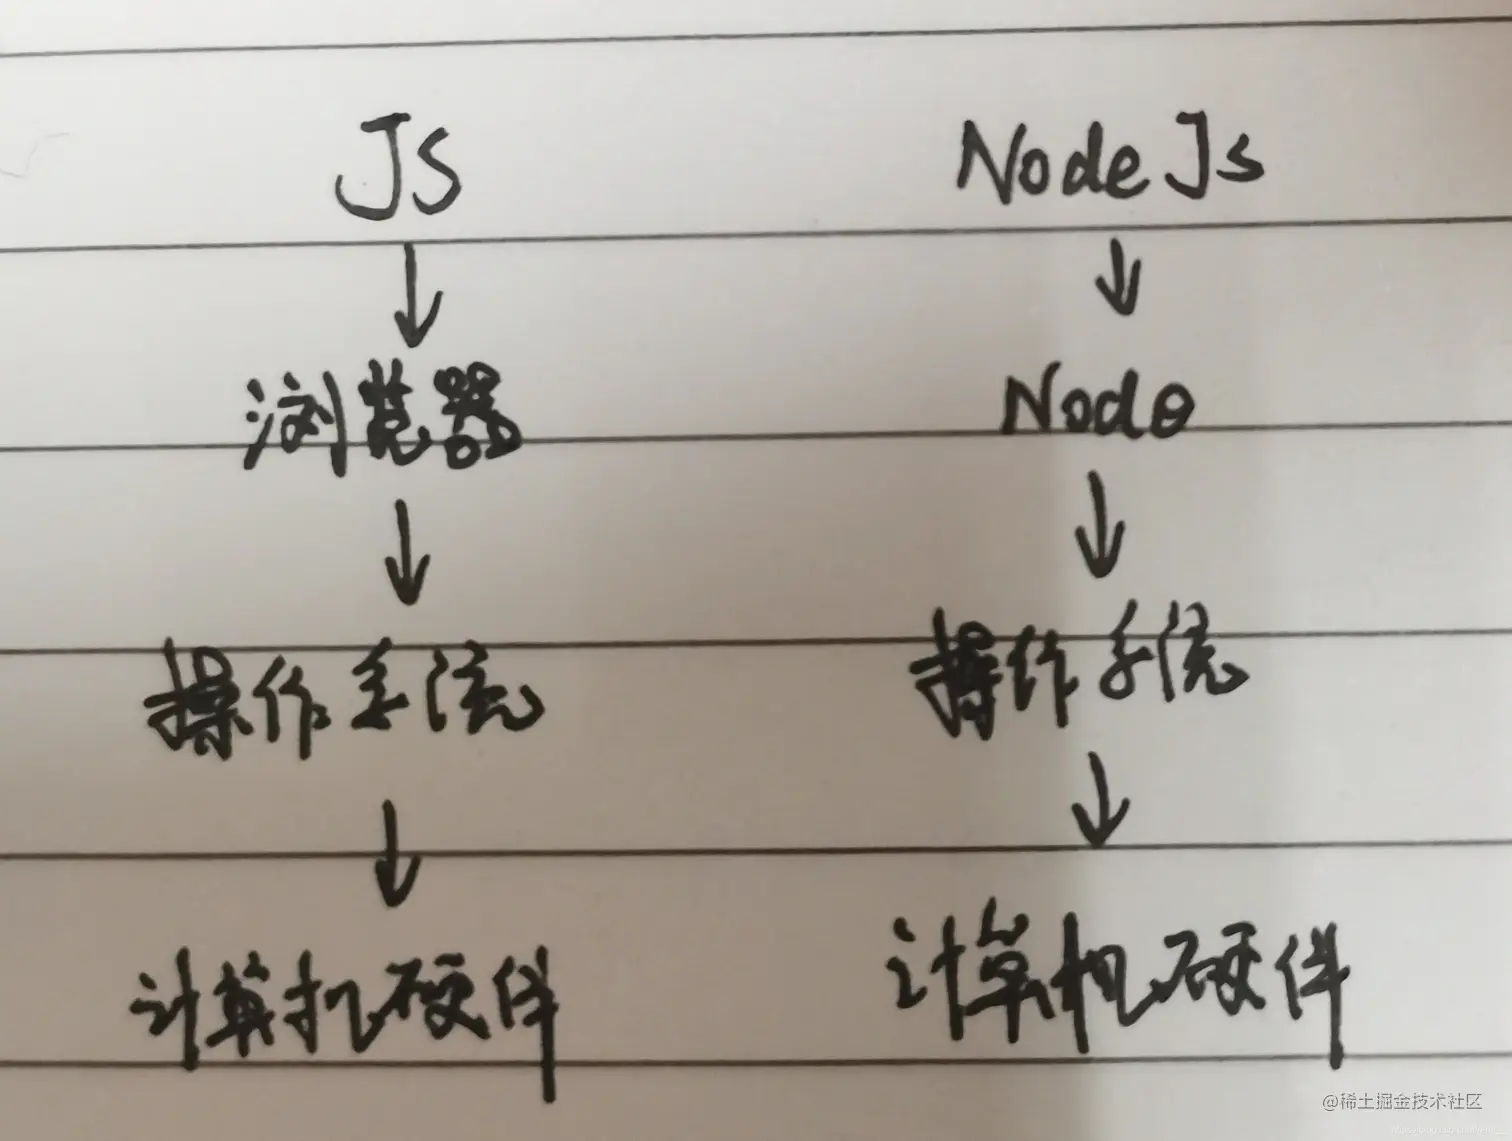 JS
NodeJs
浏览器
Node
操作系统
操作系统
计算机硬件
计算机硬件
@稀土掘金技术社区